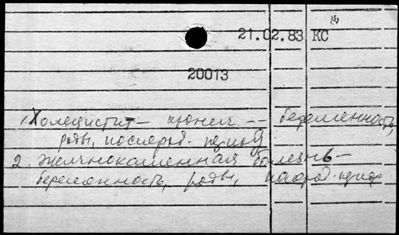 21.02.83 КС
20013
1. Холецистит – хронич. -- беременность,
роды, послерод. период
2. Желчнокаменная болезнь –
беременность, роды, период